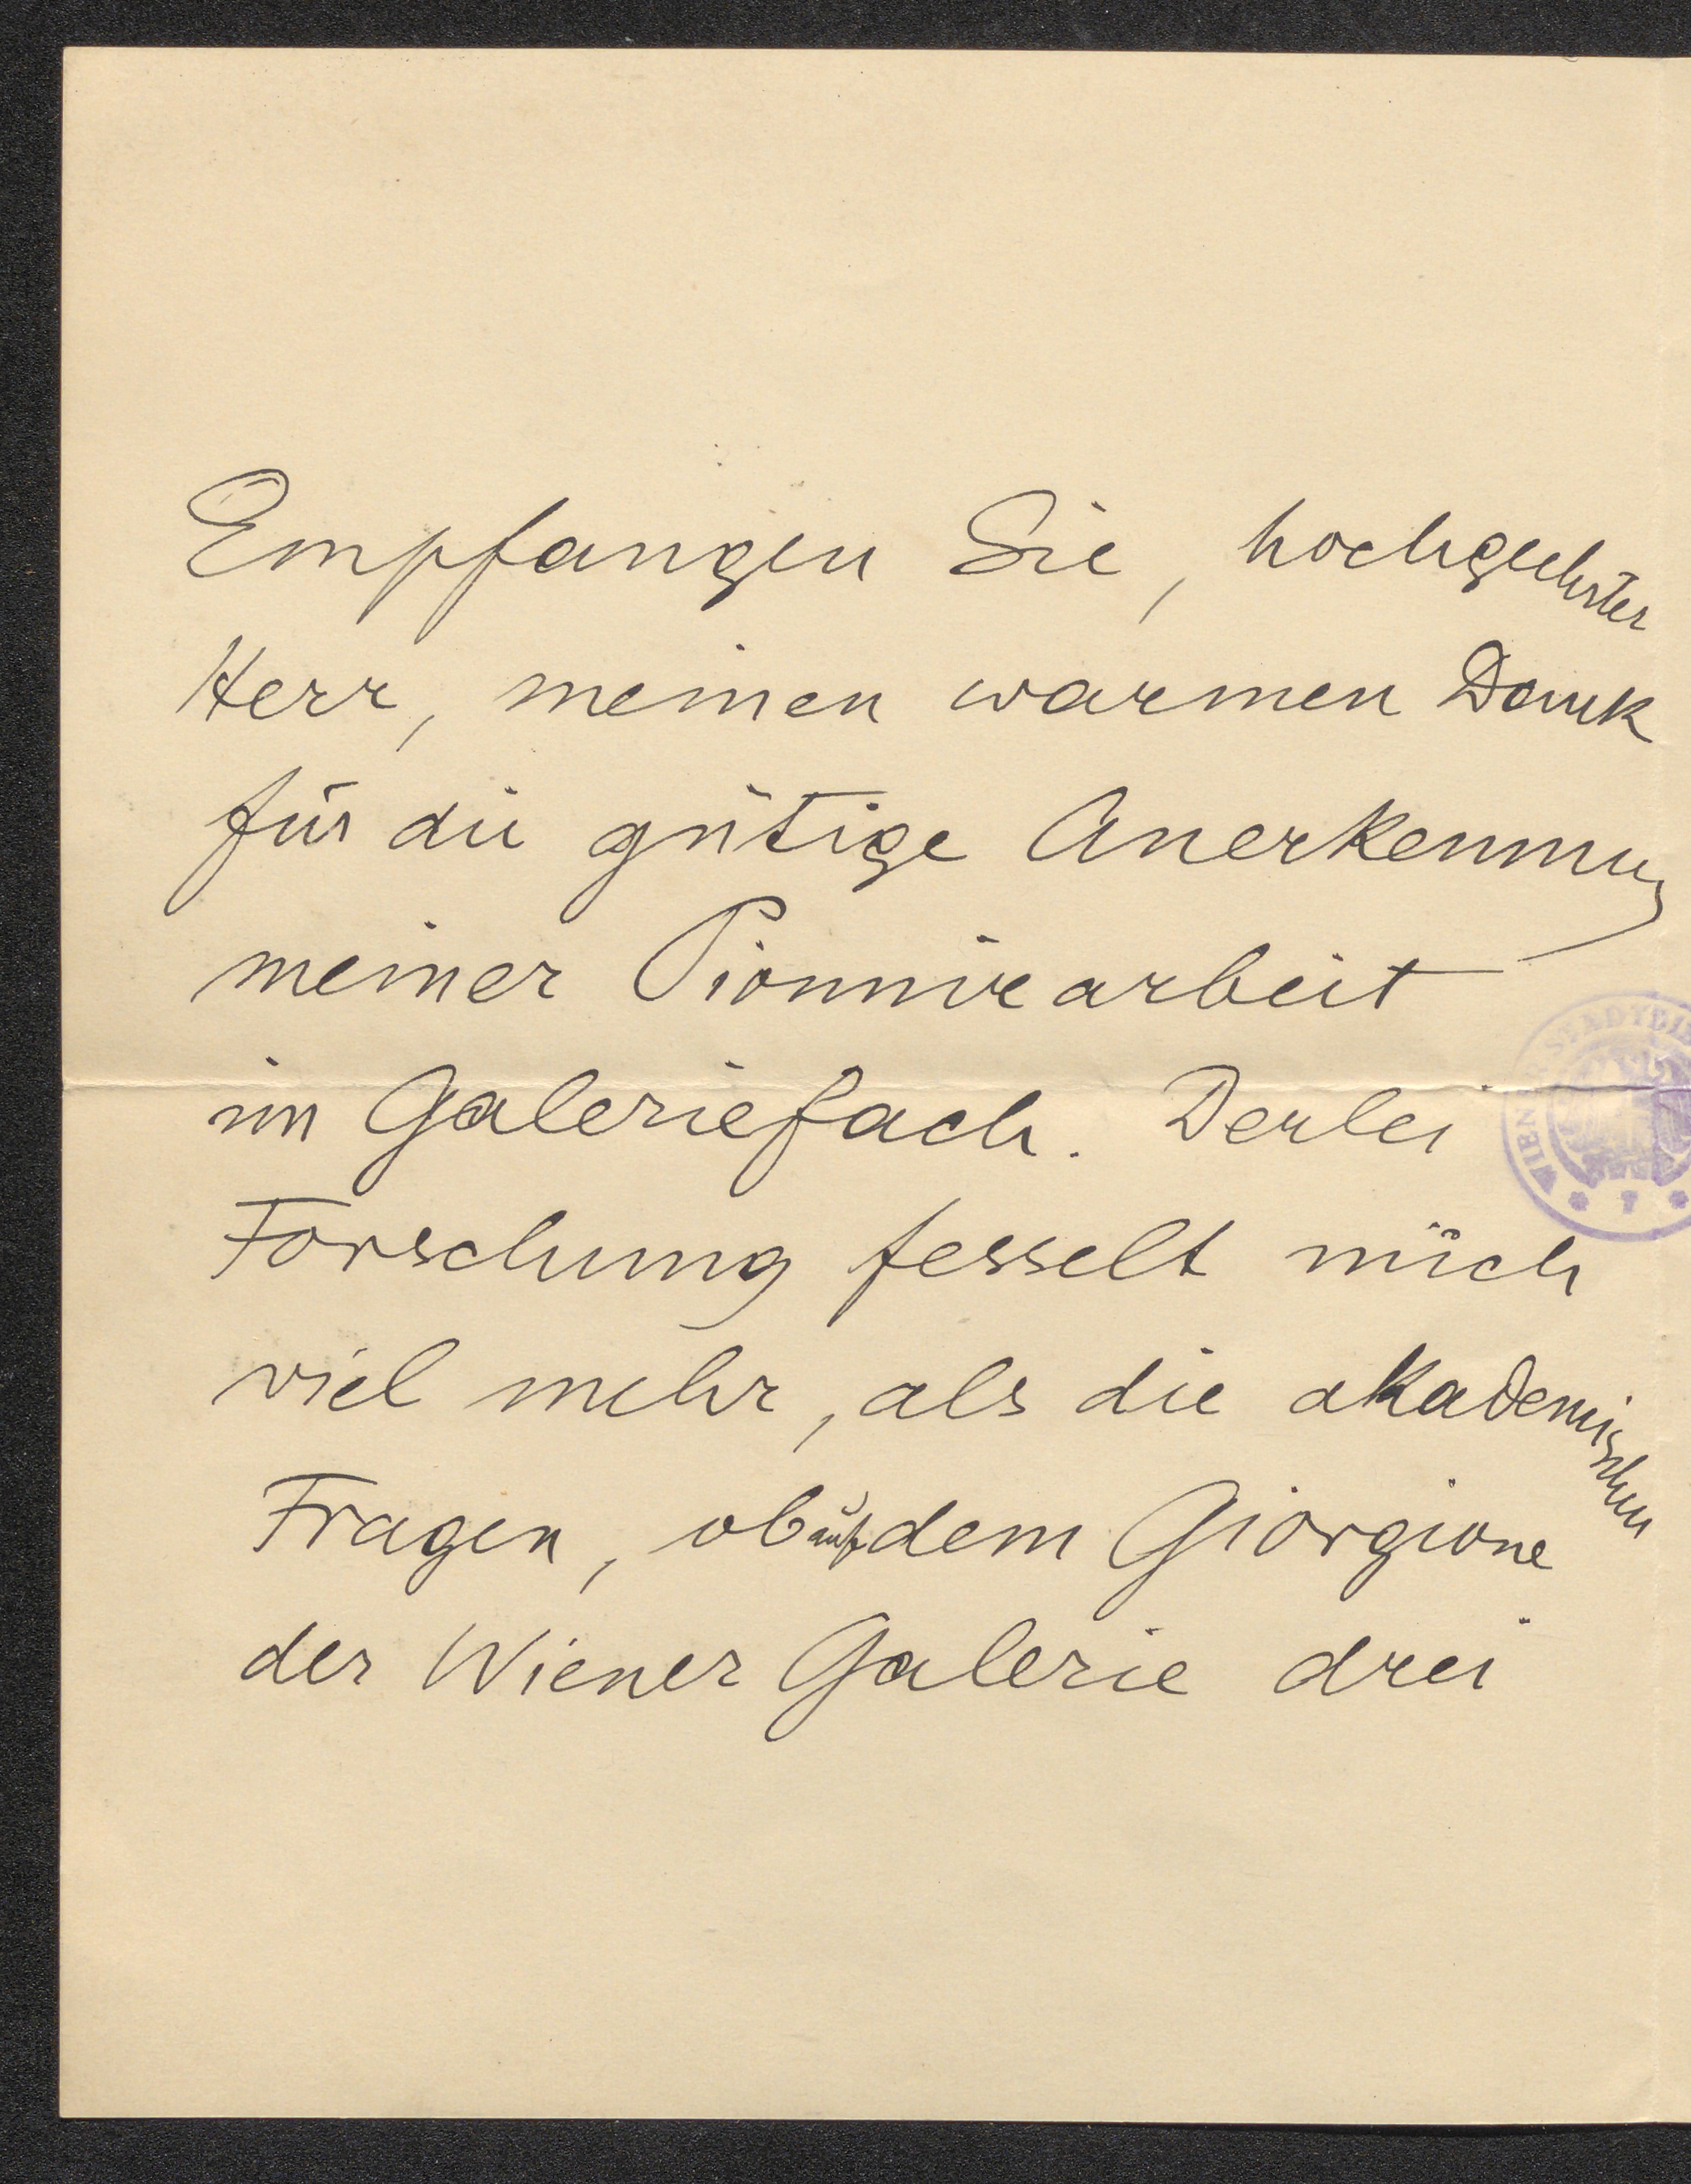 Empfangen Sie, hochgeehrter
Herr, meinen warmen Dank
für die gütige Anerkennung
meiner Pionnirarbeit
im Galeriefach. Derlei
Forschung fesselt mich
viel mehr, als die akademischen
Fragen, ob auf dem Giorgione
der Wiener Galerie drei
WIENER STADTBI
* 7 *